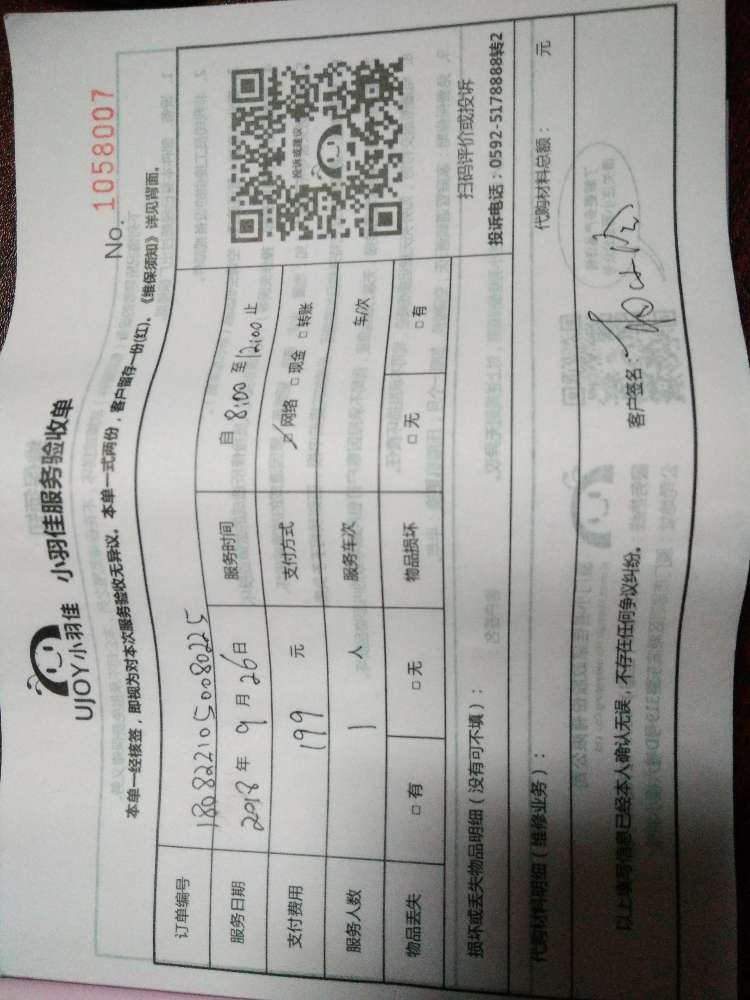 UJOY小羽佳 小羽佳服务验收单
No. 1058007
本单一经核签，即视为对本次服务验收无异议。本单一式两份，客户留存一份(红)。《维保须知》详见背面。
订单编号 1808221050080225
服务日期 2018 年 9 月 26 日 服务时间 自 8:00 至 12:00 止
支付费用 199 元 支付方式 ☑网络 □现金 □转账
服务人数 1 人 服务车次 车/次
物品丢失 □有 □无 物品损坏 □无 □有
投诉或建议
扫码评价或投诉
投诉电话：0592-5178888转2
损坏或丢失物品明细（没有可不填）：
代购材料明细（维修业务）： 代购材料总额： 元
以上填写信息已经本人确认无误，不存在任何争议纠纷。 客户签名：